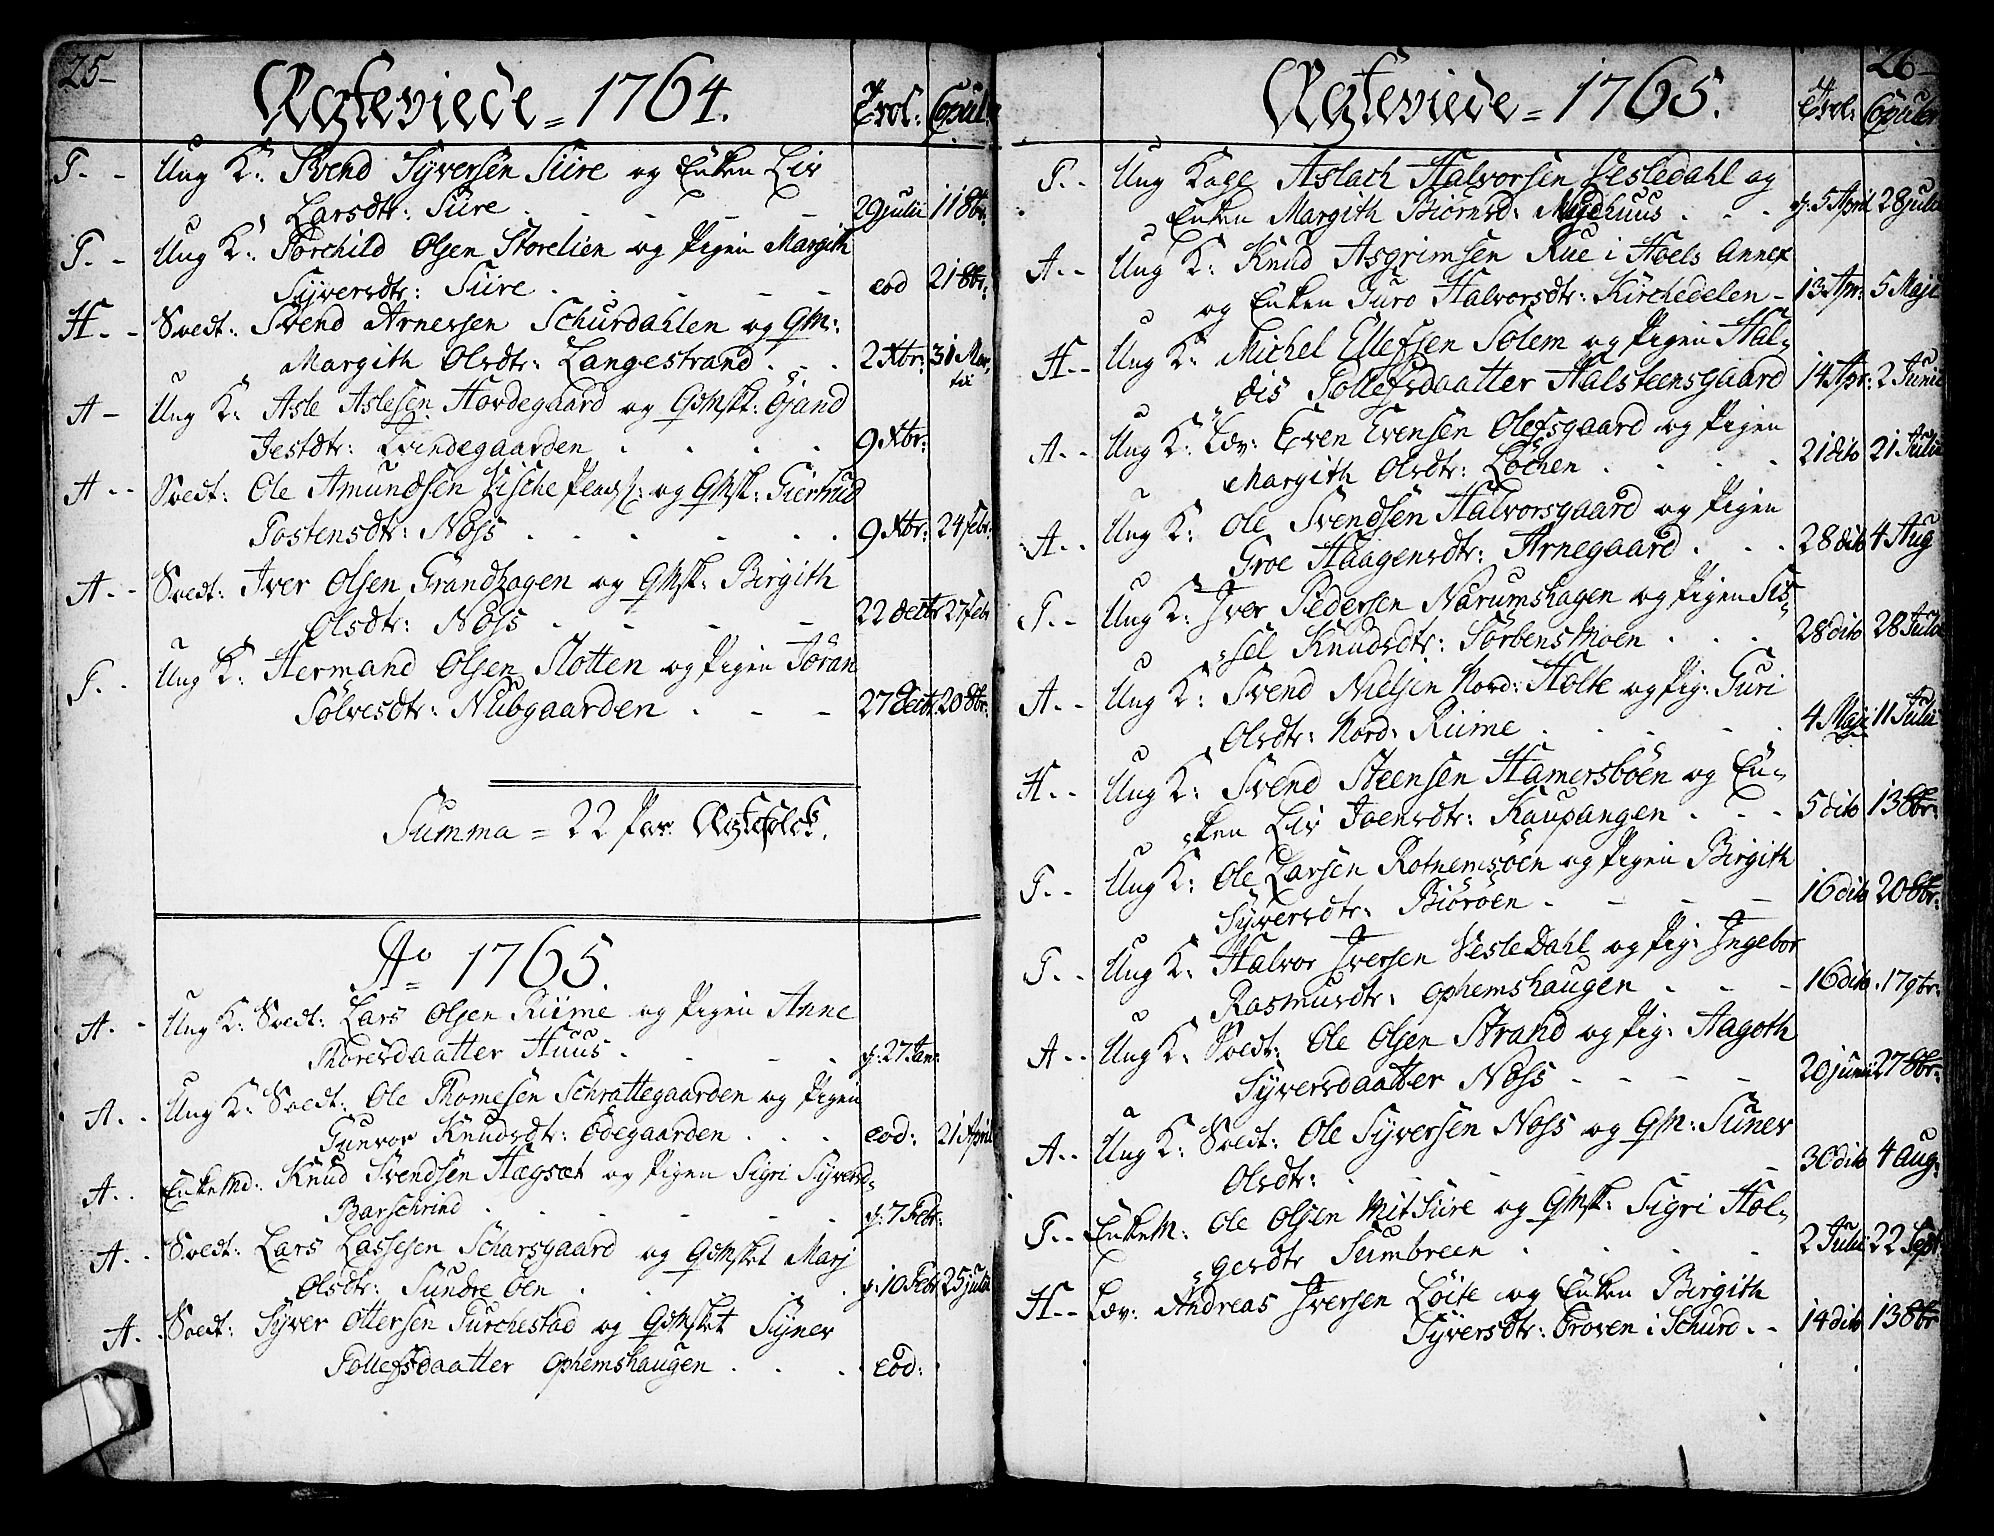 25-
Ægteviede = 1764.
Trol: Copul:
T. - Ung K: Svend Syversen Siire og Enken Liv
Larsdtr: Siire . - - - - 29 julii 11 8br:
T. - Ung K: Torchild Olsen Storelien og Pigen Margith
Syversdtr: Siire . - - - - eod 21 8br:
H - - Soldt: Svend Arnesen Schurdahlen og GM:
Margith Olsdtr: Langestrand . - . 2 Xbr: 31 Martii
A - Ung K: Asle Aslesen Hovdegaard og GemSkt: Ojand
Jestdtr: Windegaarden . . . . 9 Xbr:
A - - Soldt: Ole Amundsen og GMSk: Giertrud
Tostensdtr: Noss . . . . . 9 Xbr: 24 Febr:
A - - Soldt: Iver Olsen Grandhagen og GMSk: Birgith
Olsdtr: Noss . - - - 22 Decbr 27 Febr
T. - Ung K: Hermand Olsen Slotten og Pigen Jøran
Sølvesdtr: Nubgaarden . - - 27 Decbr. 20 8br:
Summa = 22 Par Ægtefolck.
Ao 1765.
A. - Ung K: Soldt: Lars Olsen Riime og Pigen Anne
Thoresdaatter Huus . - - - d: 27 Jan:
A. - Ung K: Soldt: Ole Thomesen Schrattegaarden og Pigen
Gunvor Knudsdtr: Ødegaarden . . . eod: 21 April
A. . EnkeMd: Knud Svendsen Hagsæt og Pigen Sigri Syversd-
Barschrind . . . . . d: 7 Febr:
A. . Soldt: Lars Lassesen Scharsgaard og GemSket Marj
Olsdtr: Sundre Øen . . . . d: 10 Febr 25 julii
A. . Soldt: Syver Ottersen Turchestad og GemSket Syner
Tollefsdaatter Ophemshaugen . . . eod:
26-
Ægteviede = 1765.
Trol: Copuler
T. - Ung Kalf Aslach Halvorsen Vestedahl og
Enken Margith Biørnsd: Midhuus . . . d: 5 April 28 julii
A. - Ung K: Knud Asgrimsen Rue i Hoels Annex
og Enken Guro Halvorsdtr: Kirchedelen - 13 Apr: 5 Maji
H - - Ung K: Michel Ellefsen Solem og Pigen Hal-
dis Tollefsdaatter Halsteensgaard 14 Apr: 2 Junii
A. - Ung K: Lov: Even Evensen Olefsgaard og Pigen
Margith Olsdtr: Løchen . . . . 21 dito 21 Julii
A. . Ung K: Ole Svendsen Halvorsgaard og Pigen
Groe Haagensdtr: Arnegaard . . . 28 dito 4 Aug
T. - Ung K: Iver Pedersen Narumshagen og Pigen Sis-
sel Knudsdtr: Torbensmoen . . . 28 dito 28 Julii
A. - Ung K: Svend Nielsen Nord: Holte og Pig: Guri
Olsdtr: Nord: Riime . . . . 4 Maji 11 Julii
H. - Ung K: Svend Steensen Hamersbøen og En-
ken Liv Joensdtr: Kaupangen . . . 5 dito 13 8br:
T. - Ung K: Ole Larsen Rotnemsøen og Pigen Birgith
Syversdtr: Biørøen . - - - 16 dito 20 8br:
T. - Ung K: Halvor Iversen VesleDahl og Pig: Ingebor
Rasmusdtr: Ophemshaugen . . - 16 dito. 17 9br:
A - - Ung K: Soldt: Ole Olsen Strand og Pig: Aagoth
Syversdaatter Noss - - - - 20 junii 27 8br:
A. - Ung K: Soldt: Ole Syversen Noss og GM: Suner
Olsdtr: . - - - 30 dito 4 Aug:
T. - EnkeM: Ole Olsen MitSiire og GMSk: Sigri Hol-
gersdtr Sumbreen . . . . 2 Julii 22 Sept
H - - Lov: Andreas Iversen Løite og Enken Birgith
Syversdtr: Troven i Schurd. - 14 dito 13 8br